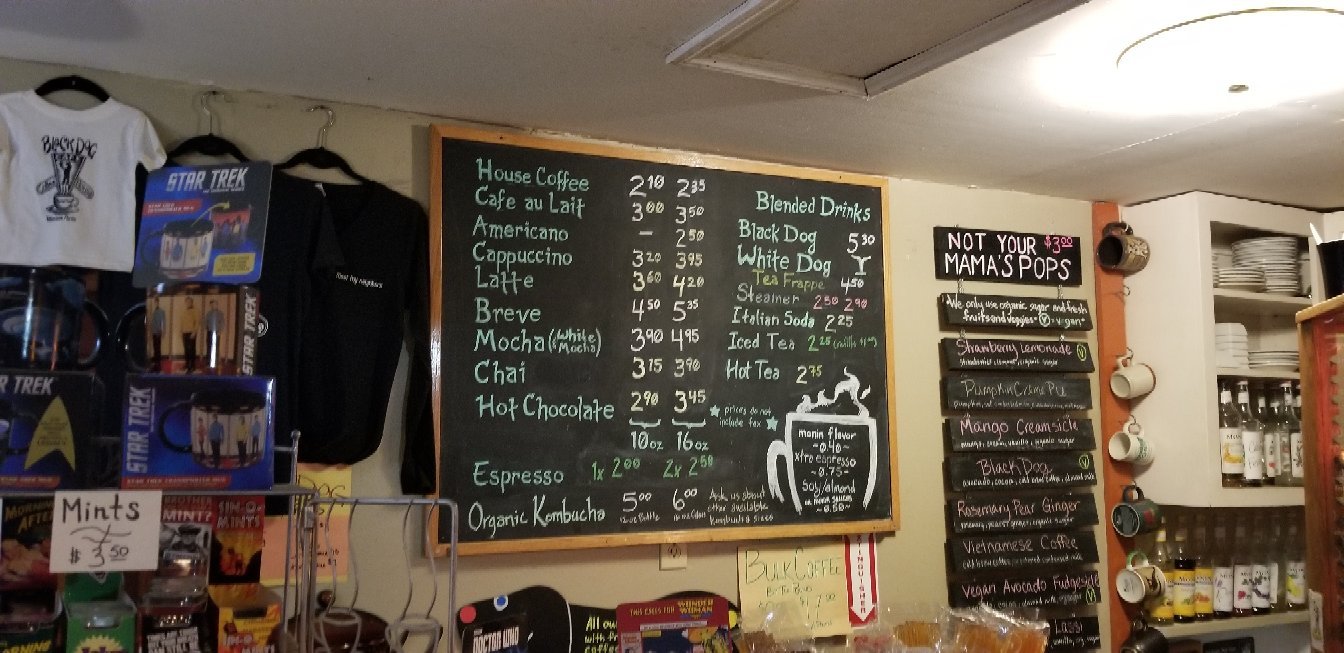 BLACK DOG
STAR TREK
STAR TREK
TREK
STAR TREK
Mints
$3.50
MINT?
SIN-O-
MINTS
House Coffee 2.10 2.35
Cafe au Lait 3.00 3.50
Americano — 2.50
Cappuccino 3.20 3.95
Latte 3.60 4.20
Breve 4.50 5.35
Mocha (White Mocha) 3.90 4.95
Chai 3.75 3.90
Hot Chocolate 2.90 3.45
10oz 16oz
Espresso 1x 2.00 2x 2.50
Organic Kombucha 5.00 6.00
Ask us about
other available
Kombucha sizes
★ prices do not
include tax ★
Blended Drinks
Black Dog 5.30
White Dog
Tea Frappe 4.50
Steamer 2.50 2.90
Italian Soda 2.25
Iced Tea 2.25
Hot Tea 2.75
monin flavor
~0.40~
xtra espresso
~0.75~
Soy/almond
~0.50~
NOT YOUR $3.00
MAMA'S POPS
We only use organic sugar and fresh
fruits and veggies V = vegan
Strawberry Lemonade V
Pumpkin Creme Pie
Mango Creamsicle
Black Dog V
Rosemary Pear Ginger
Vietnamese Coffee
Vegan Avocado Fudgesicle
V
Lassi
BULK COFFEE
EXTINGUISHER
DOCTOR WHO
THIS CALLS FOR WONDER
WOMAN